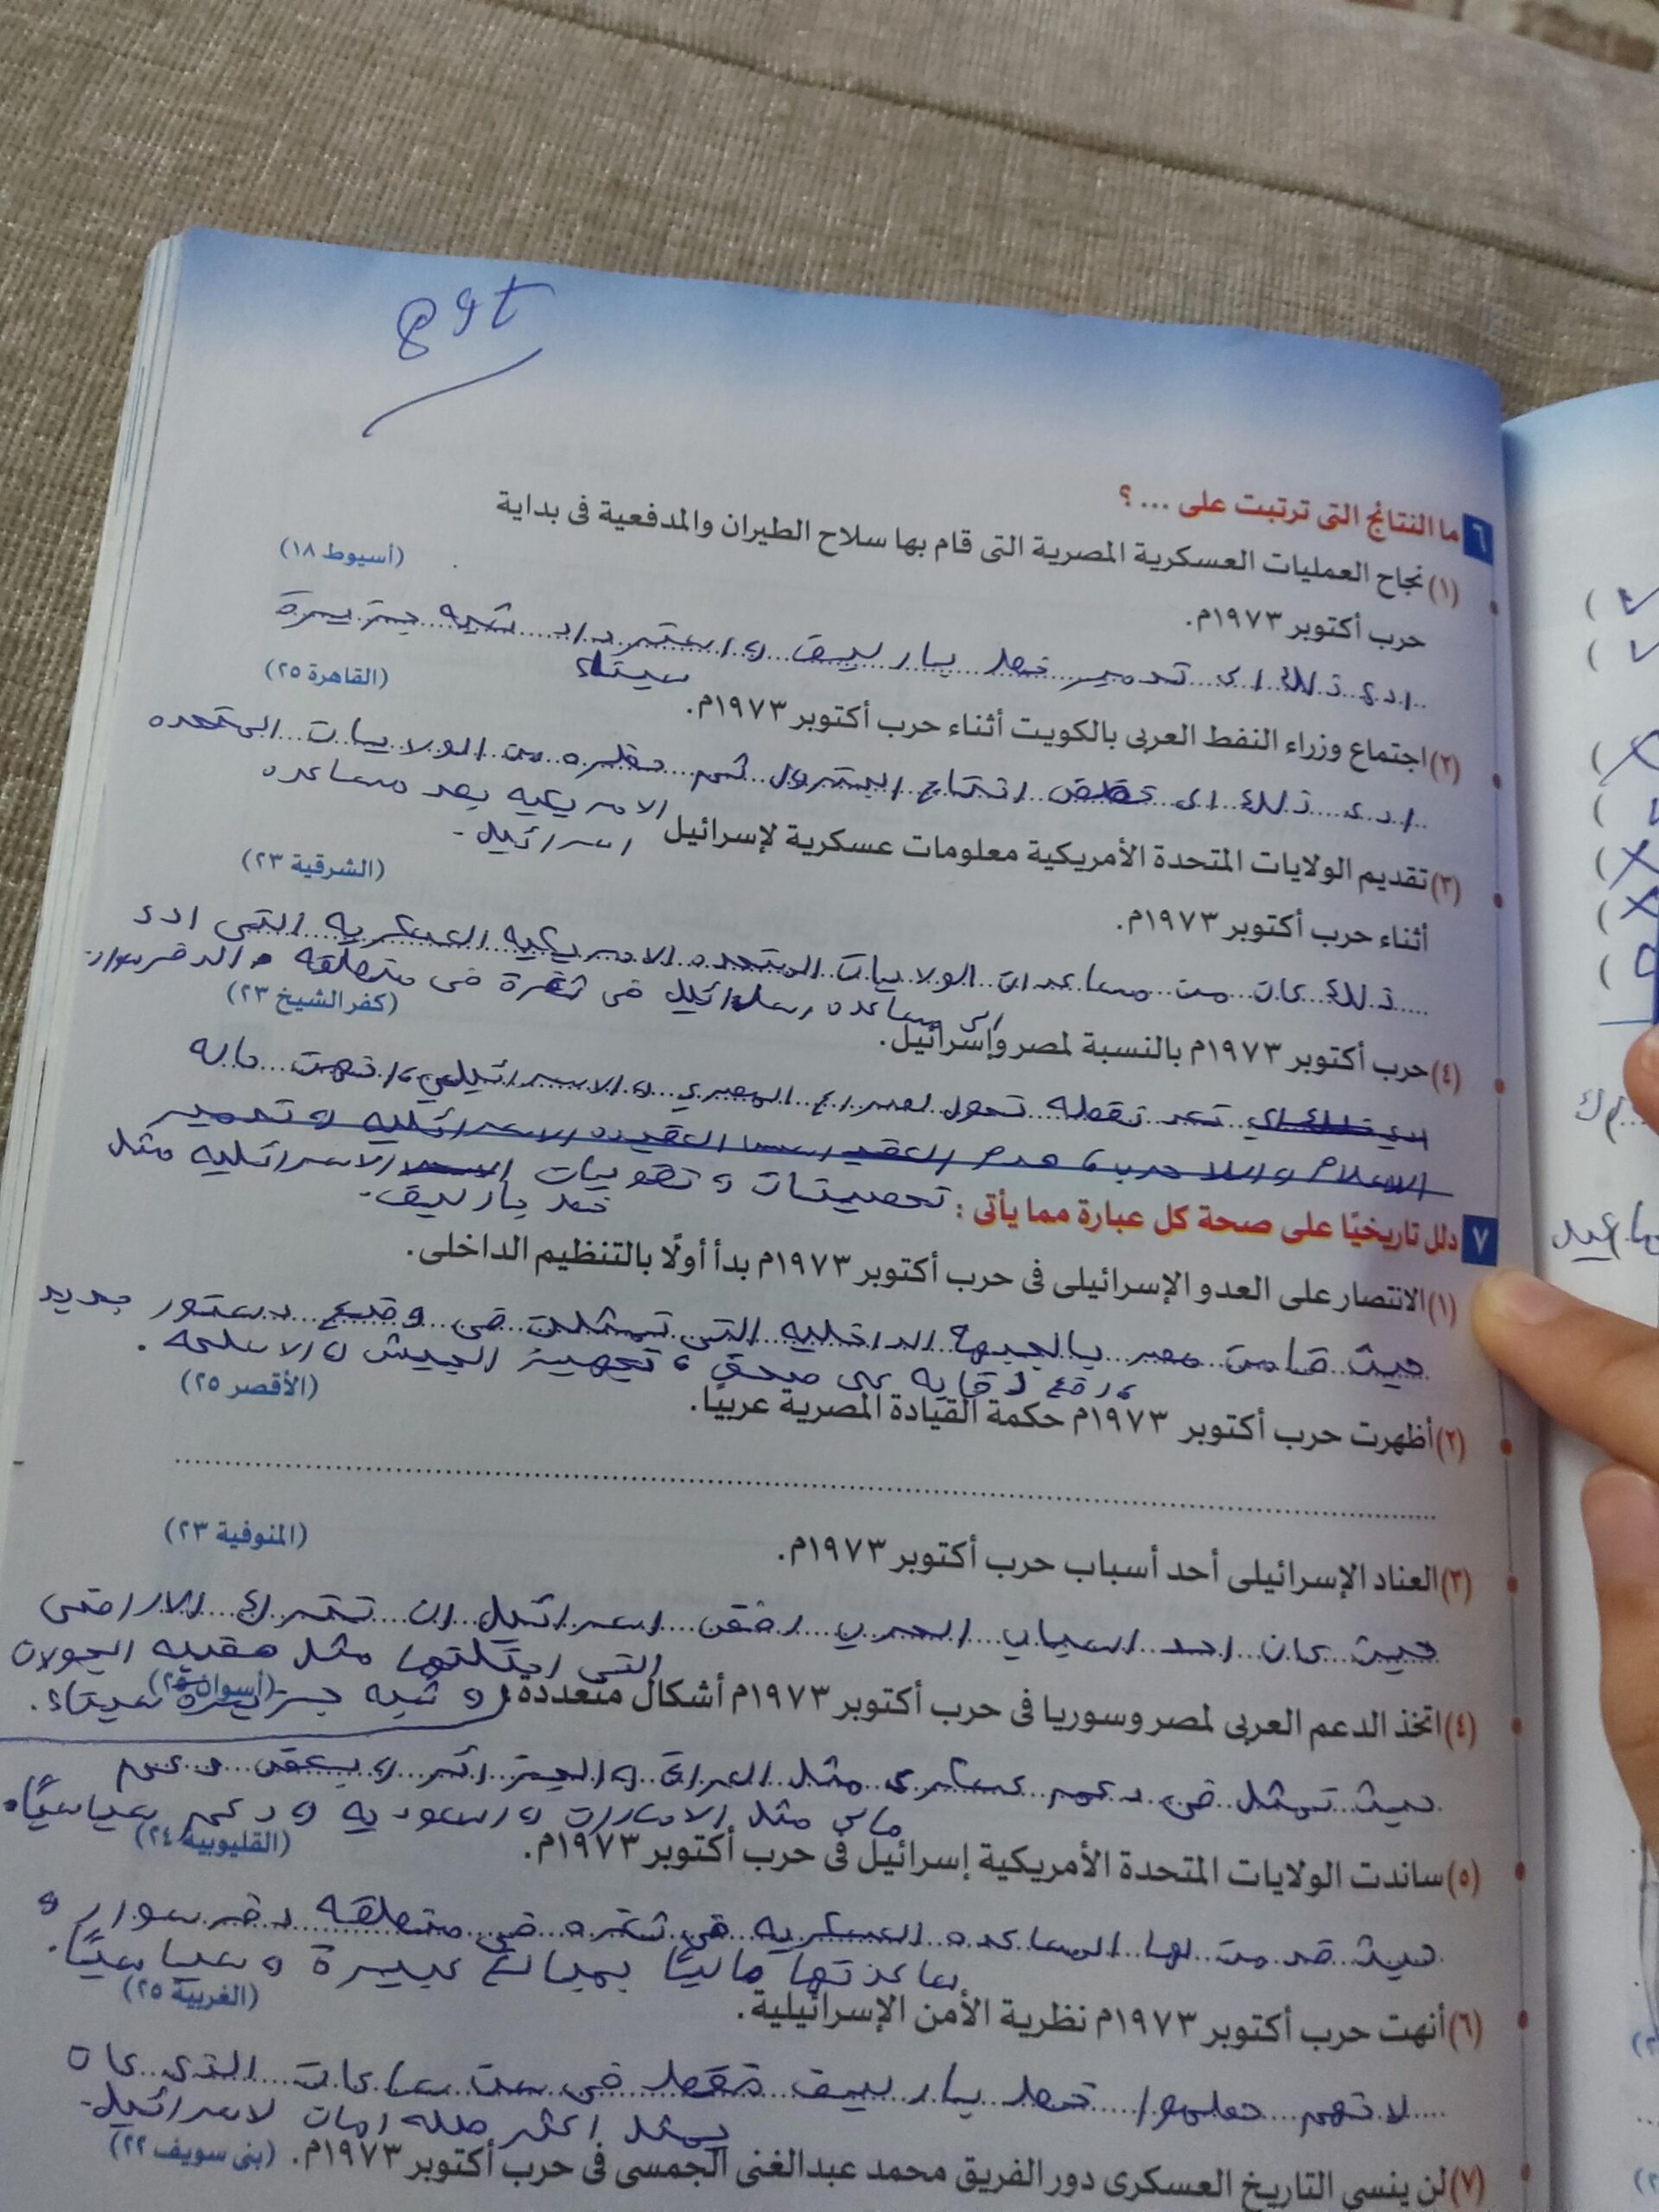 ٦ ما النتائج التى ترتبت على ... ؟
(١) نجاح العمليات العسكرية المصرية التى قام بها سلاح الطيران والمدفعية فى بداية
حرب أكتوبر ١٩٧٣م. (أسيوط ١٨)
ادى ذلك الى تدمير خط بارليف و استرداد شبه جزيرة
سيناء
(٢) اجتماع وزراء النفط العربى بالكويت أثناء حرب أكتوبر ١٩٧٣م. (القاهرة ٢٥)
ادى ذلك الى خفض انتاج البترول ثم حظره من الولايات المتحده
الامريكيه بعد مساعده
اسرائيل.
(٣) تقديم الولايات المتحدة الأمريكية معلومات عسكرية لإسرائيل
أثناء حرب أكتوبر ١٩٧٣م. (الشرقية ٢٣)
ذلك كان من مساعدات الولايات المتحده الامريكيه العسكريه التى ادى
الى مساعده اسرائيل فى ثغرة فى منطقه الدفرسوار.
(٤) حرب أكتوبر ١٩٧٣م بالنسبة لمصر وإسرائيل. (كفر الشيخ ٢٣)
تعد نقطه تحول لصراع المصري و الاسرائيلي، انهت حاله
السلام و اللا حرب، هدم العقيده الاسرائليه و تدمير
تحصينات و تهويات الاسرائليه مثل
خط بارليف.
٧ دلل تاريخيًا على صحة كل عبارة مما يأتى :
(١) الانتصار على العدو الإسرائيلى فى حرب أكتوبر ١٩٧٣م بدأ أولًا بالتنظيم الداخلى.
حيث قامت مصر بالجبهة الداخليه التى تمثلت فى وضع دستور جديد
، رفع رقابه على صحف، تجهيز الجيش و الاسلحه.
(٢) أظهرت حرب أكتوبر ١٩٧٣م حكمة القيادة المصرية عربيًا. (الأقصر ٢٥)
(٣) العناد الإسرائيلى أحد أسباب حرب أكتوبر ١٩٧٣م. (المنوفية ٢٣)
حيث كان احد اسباب الحرب رفض اسرائيل ان تترك الاراضى
التى احتلتها مثل هضبه الجولان
و شبه جزيرة سيناء.
(٤) اتخذ الدعم العربى لمصر وسوريا فى حرب أكتوبر ١٩٧٣م أشكال متعددة. (أسوان ٢٥)
حيث تمثل فى دعم عسكرى مثل العراق و الجزائر و بعض دعم
مالى مثل الامارات و السعوديه و دعم سياسيًا.
(٥) ساندت الولايات المتحدة الأمريكية إسرائيل فى حرب أكتوبر ١٩٧٣م. (القليوبية ٢٤)
حيث قدمت لها المساعده العسكريه فى ثغره فى منطقه دفرسوار و
ساعدتها ماليًا بمبالغ كبيرة و سياسيًا.
(٦) أنهت حرب أكتوبر ١٩٧٣م نظرية الأمن الإسرائيلية. (الغربية ٢٥)
لانهم حطموا خط بارليف فقط فى ست ساعات الذى كان
يمثل اكثر امان لاسرائيل.
(٧) لن ينسى التاريخ العسكرى دور الفريق محمد عبدالغنى الجمسى فى حرب أكتوبر ١٩٧٣م. (بنى سويف ٢٢)